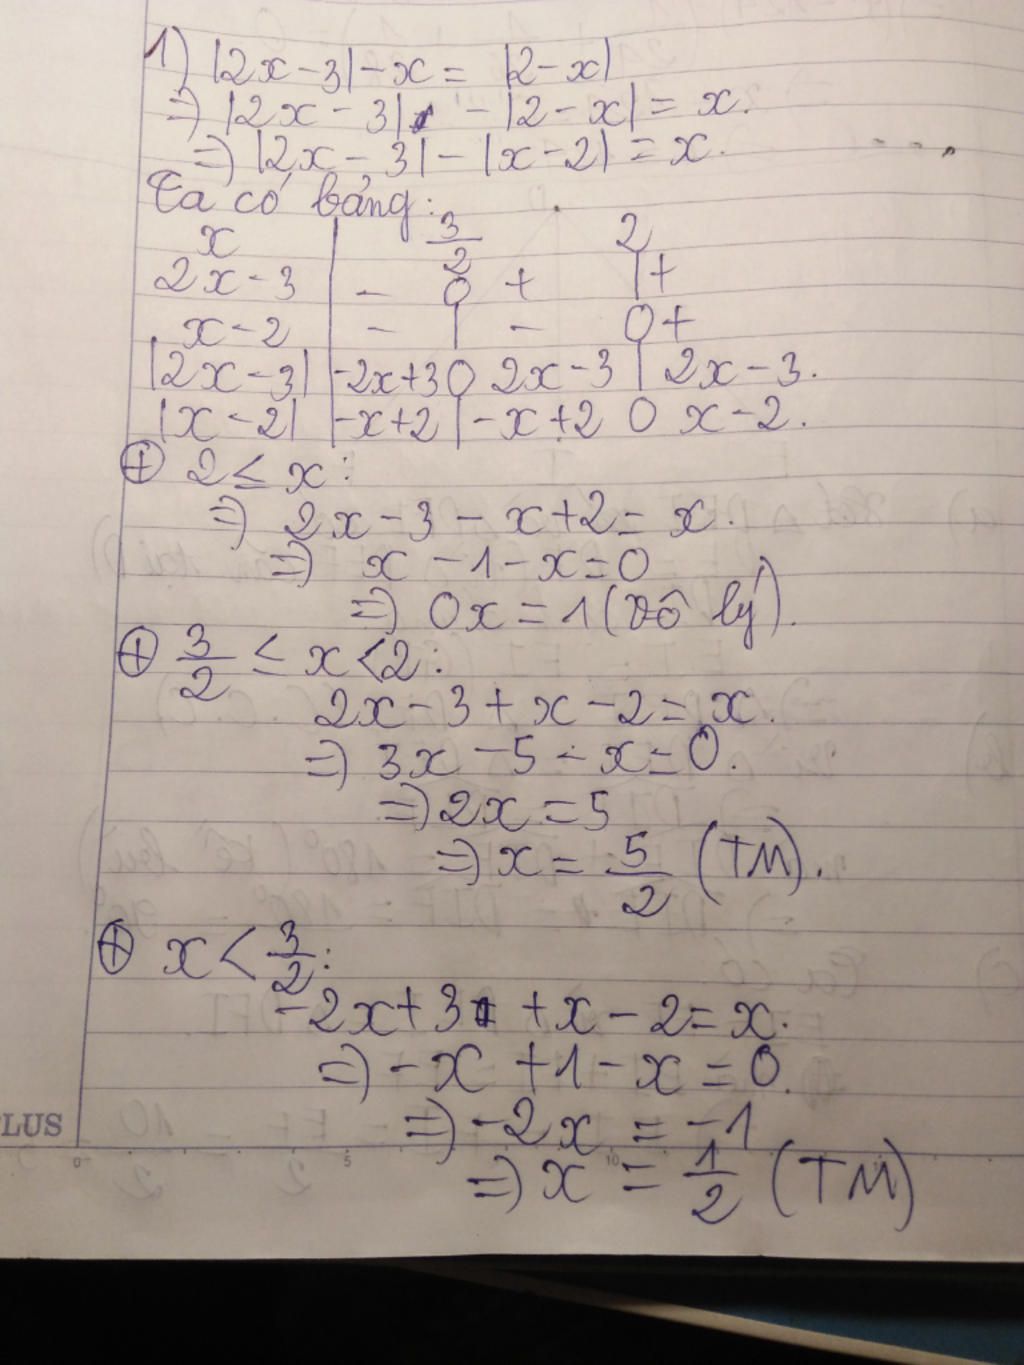 1) |2x-3|-x = |2-x|
=> |2x-3| - |2-x| = x.
=> |2x-3|-|x-2| = x.
Ta có bảng:
x 3/2 2
2x-3 - 0 + | +
x-2 - | - 0 +
|2x-3| -2x+3 0 2x-3 | 2x-3.
|x-2| -x+2 | -x+2 0 x-2.
⊕ 2 ≤ x:
=> 2x-3-x+2 = x.
=> x-1-x=0
=> 0x = 1 (vô lý).
⊕ 3/2 ≤ x < 2:
2x-3+x-2 = x.
=> 3x-5-x=0.
=> 2x = 5
=> x = 5/2 (TM).
⊕ x < 3/2:
-2x+3 +x-2 = x.
=> -x+1-x = 0.
=> -2x = -1
=> x = 1/2 (TM)
LUS
0 5 10